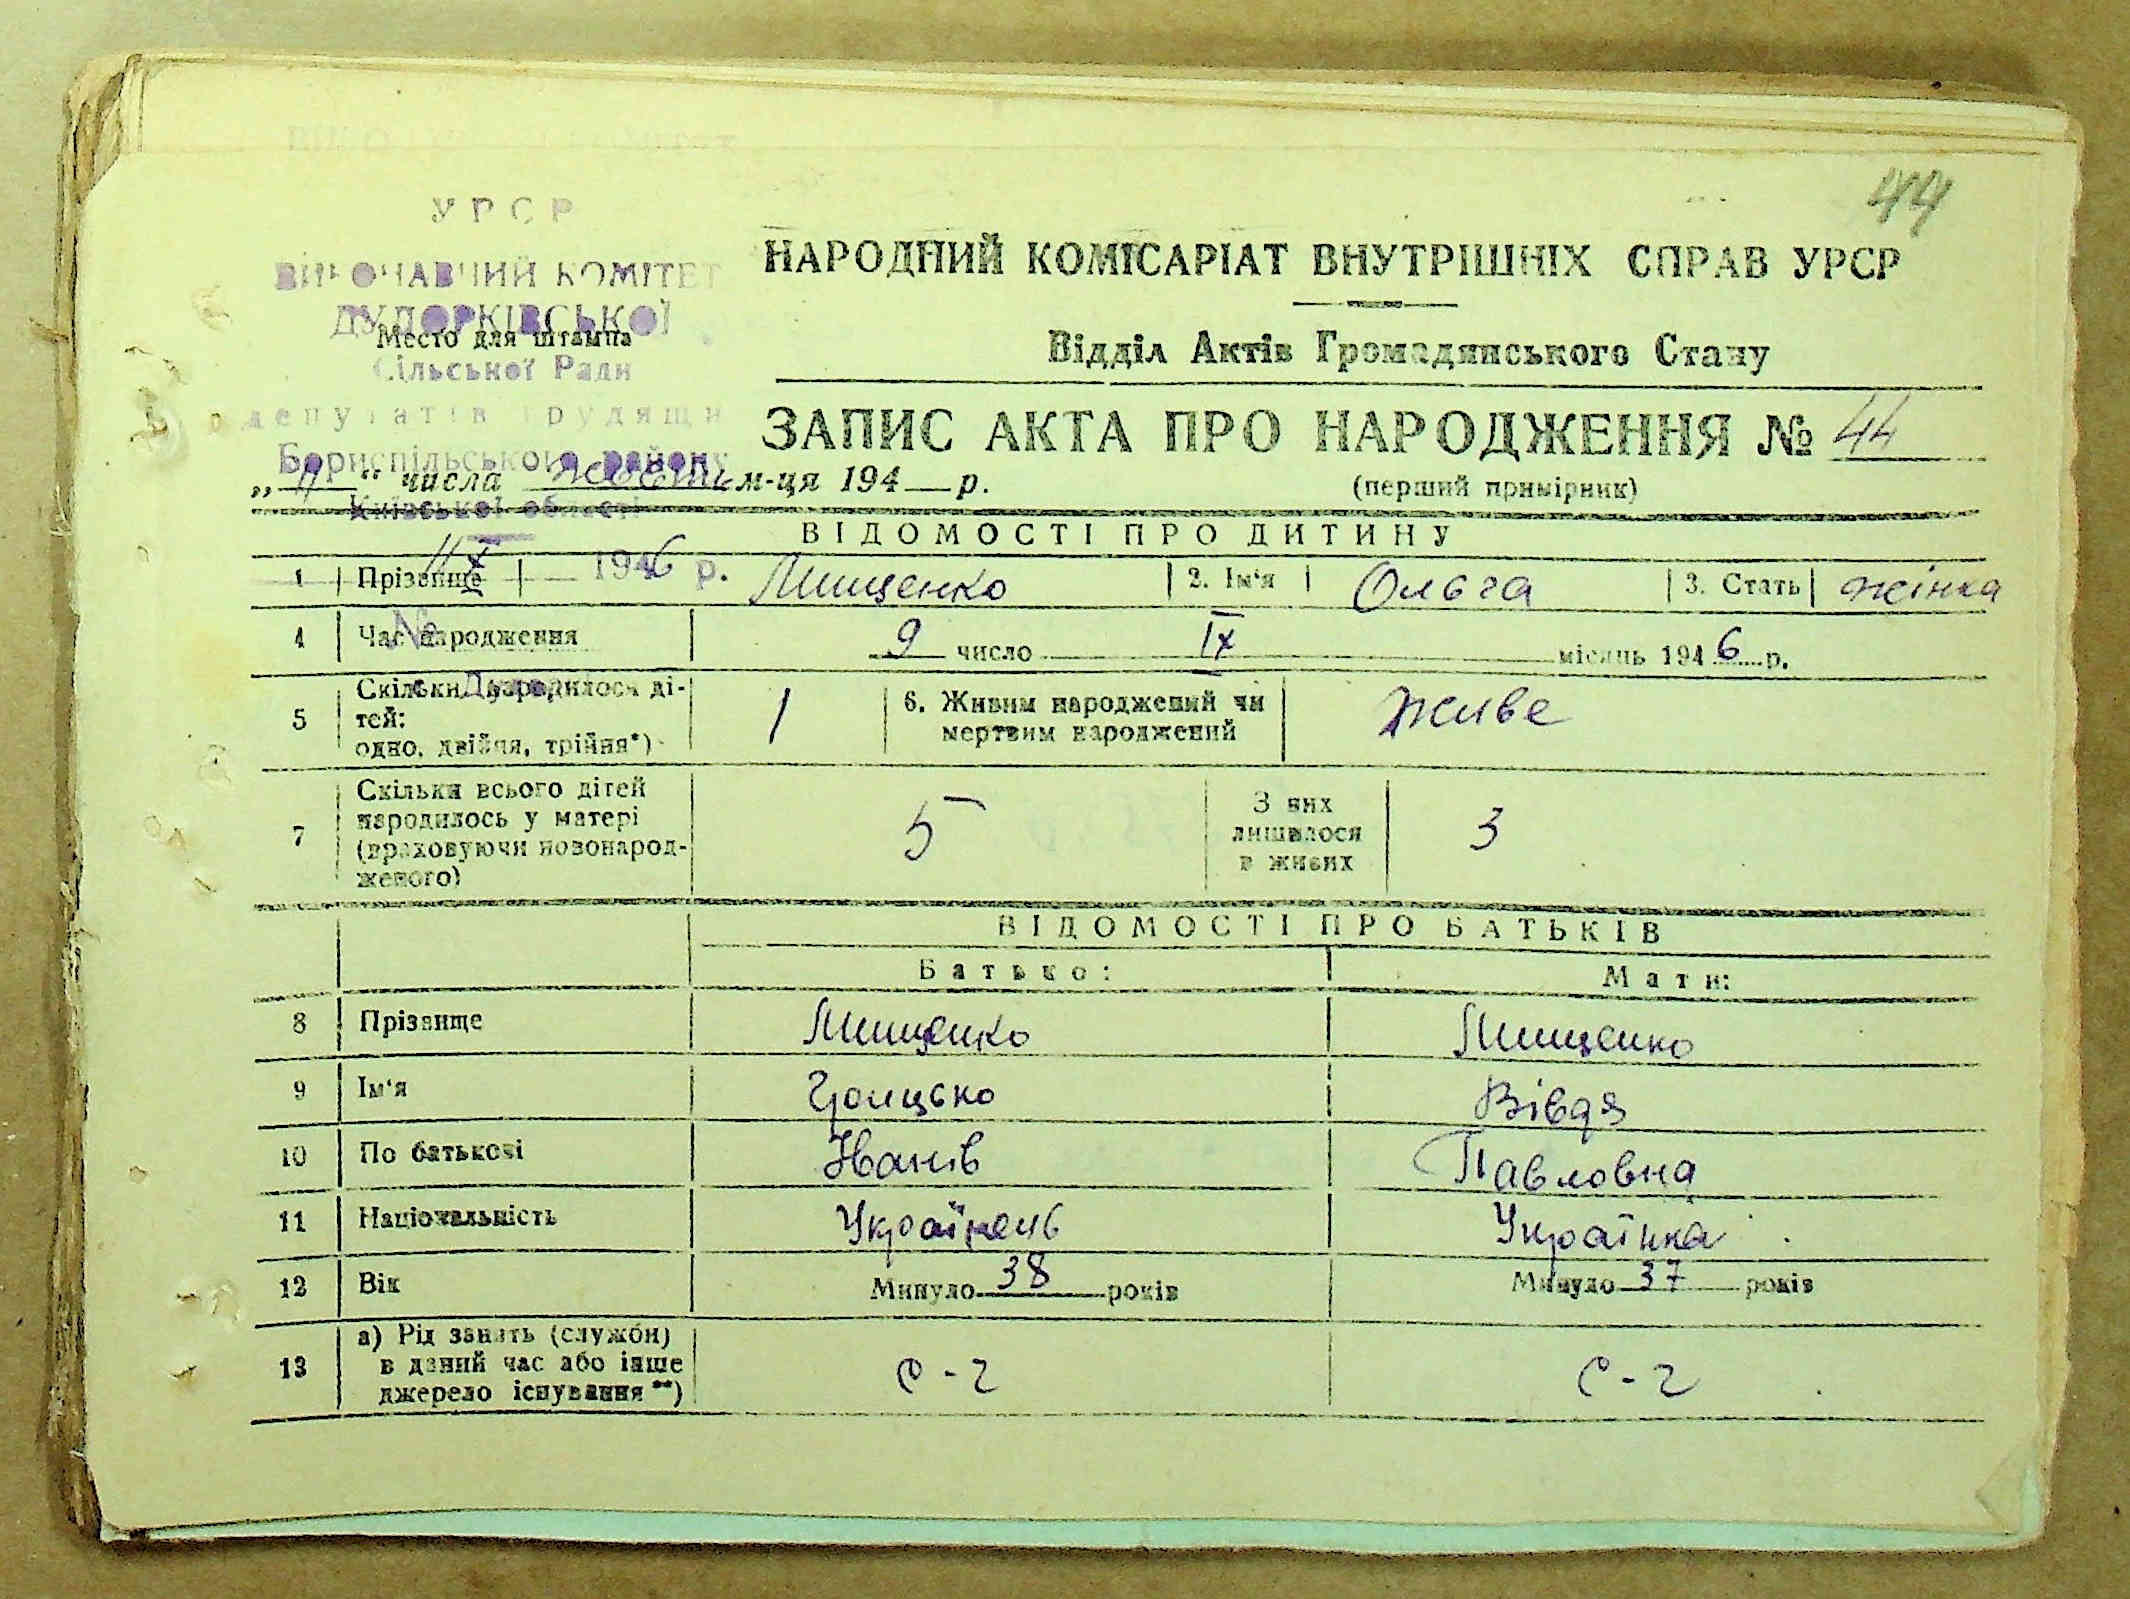 44
УРСР
ВИКОНАВЧИЙ КОМІТЕТ
ДУДОРКІВСЬКОЇ
Место для штампа
Сільської Ради
депутатів трудящи
Бориспільського району
Київської області
11 X 1946 р.
№
НАРОДНИЙ КОМІСАРІАТ ВНУТРІШНІХ СПРАВ УРСР
Відділ Актів Громадянського Стану
ЗАПИС АКТА ПРО НАРОДЖЕННЯ № 44
„11“ числа жовтн м-ця 194 р. (перший примірник)
ВІДОМОСТІ ПРО ДИТИНУ
1 Прізвище Мищенко 2. Ім'я Ольга 3. Стать жінка
4 Час народження 9 число IX місяць 1946 р.
5 Скільки народилося ді-
тей:
одно, двійня, трійня*) 1
6. Живим народжений чи
мертвим народжений живе
7 Скільки всього дітей
народилось у матері
(враховуючи новонарод-
женого) 5
З них
лишилося
в живих 3
ВІДОМОСТІ ПРО БАТЬКІВ
Батько: Мати:
8 Прізвище Мищенко Мищенко
9 Ім'я Грицько Вівдя
10 По батькові Іванів Павловна
11 Національність Українець Українка
12 Вік Минуло 38 років Минуло 37 років
13 а) Рід занять (служби)
в даний час або інше
джерело існування**) с-г с-г